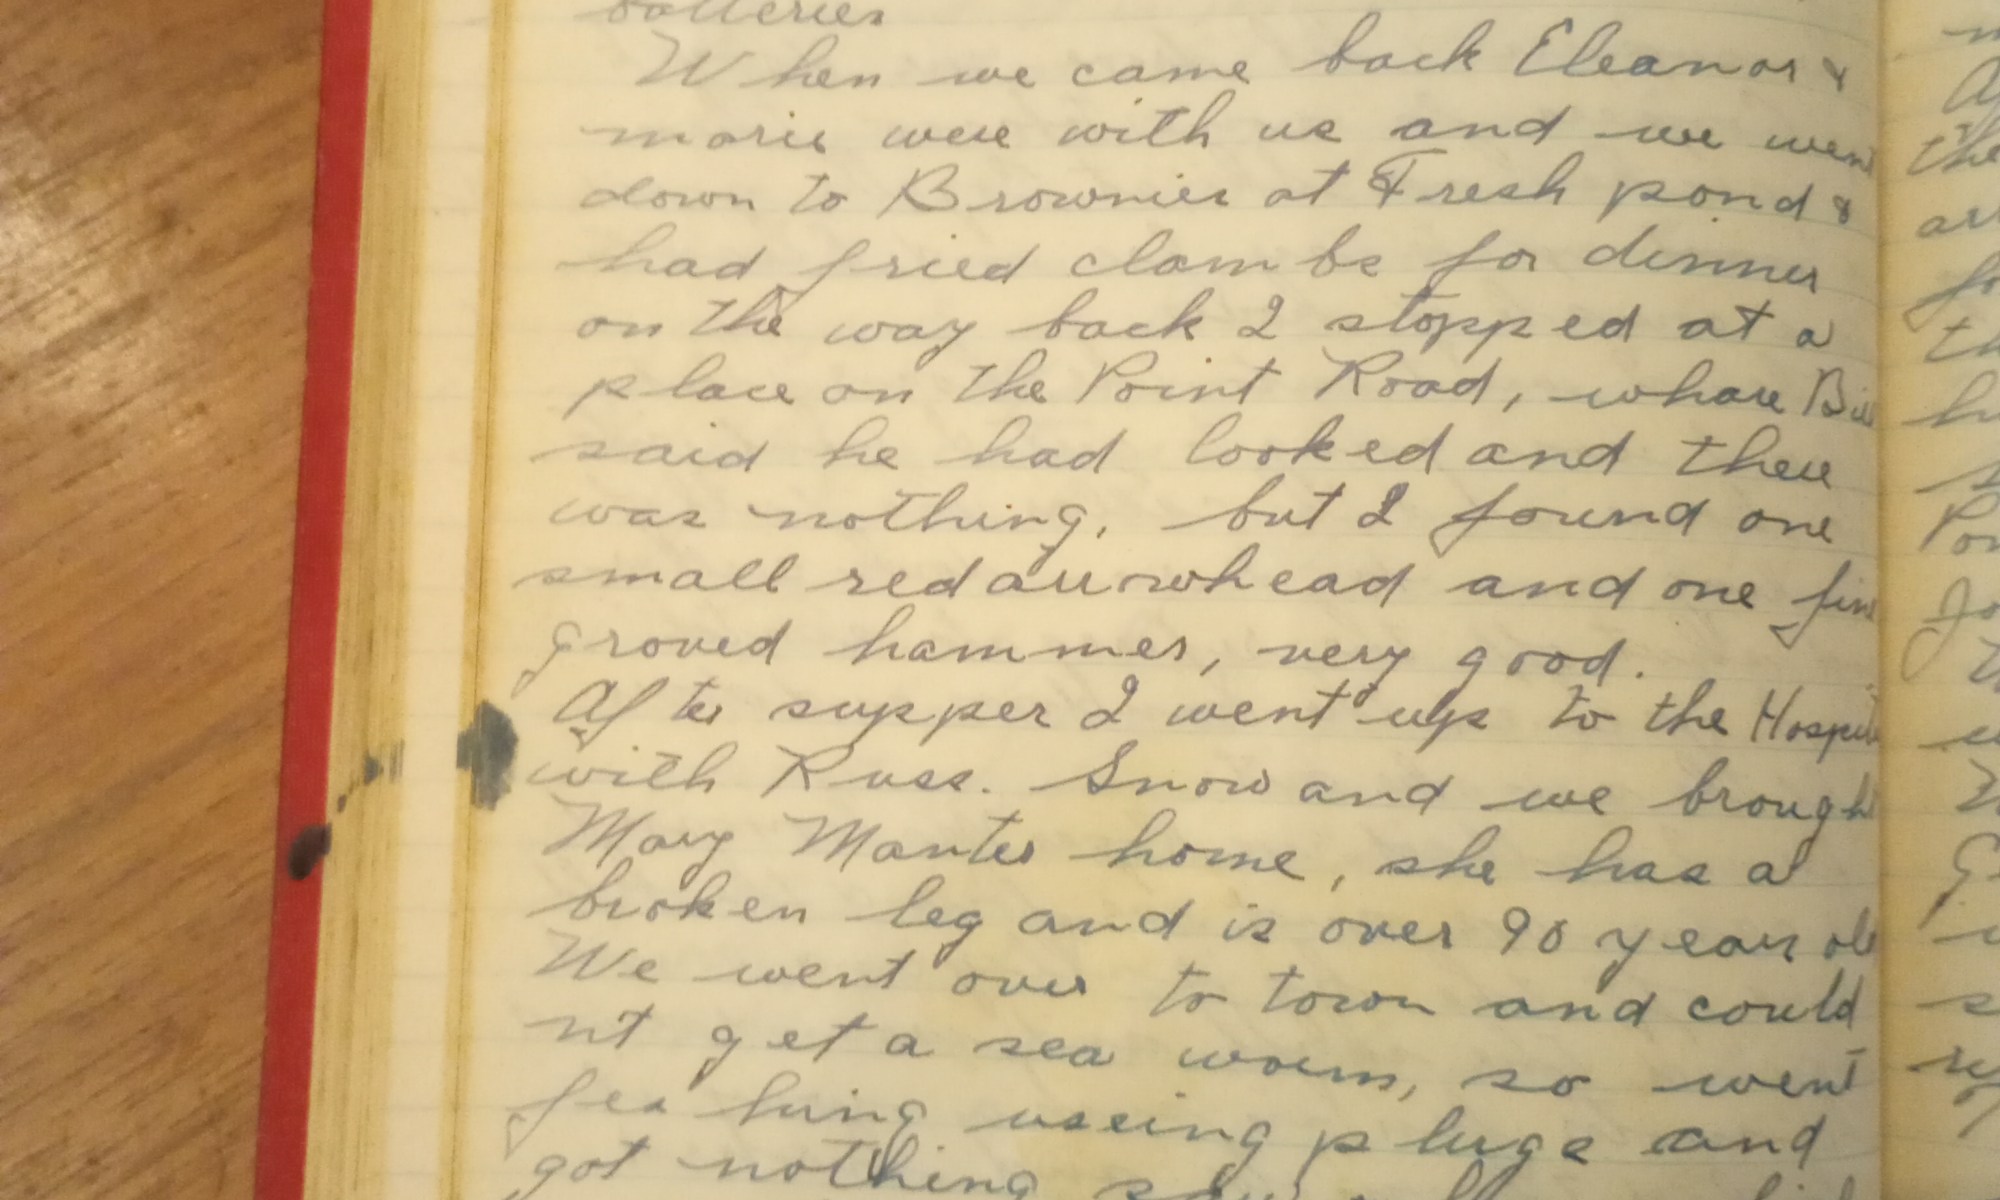 batteries
When we came back Eleanor &
marie were with us and we went
down to Brownies at Fresh pond &
had fried clambs for dinner
on the way back I stopped at a
place on the Point Road, whare Bill
said he had looked and there
was nothing, but I found one
small red arrowhead and one fine
groved hammer, very good.
After supper I went up to the Hospital
with Russ. Snow and we brought
Mary Manter home, she has a
broken leg and is over 90 years old
We went over to town and could
nt get a sea worm, so went
feshing useing plugs and
got nothing